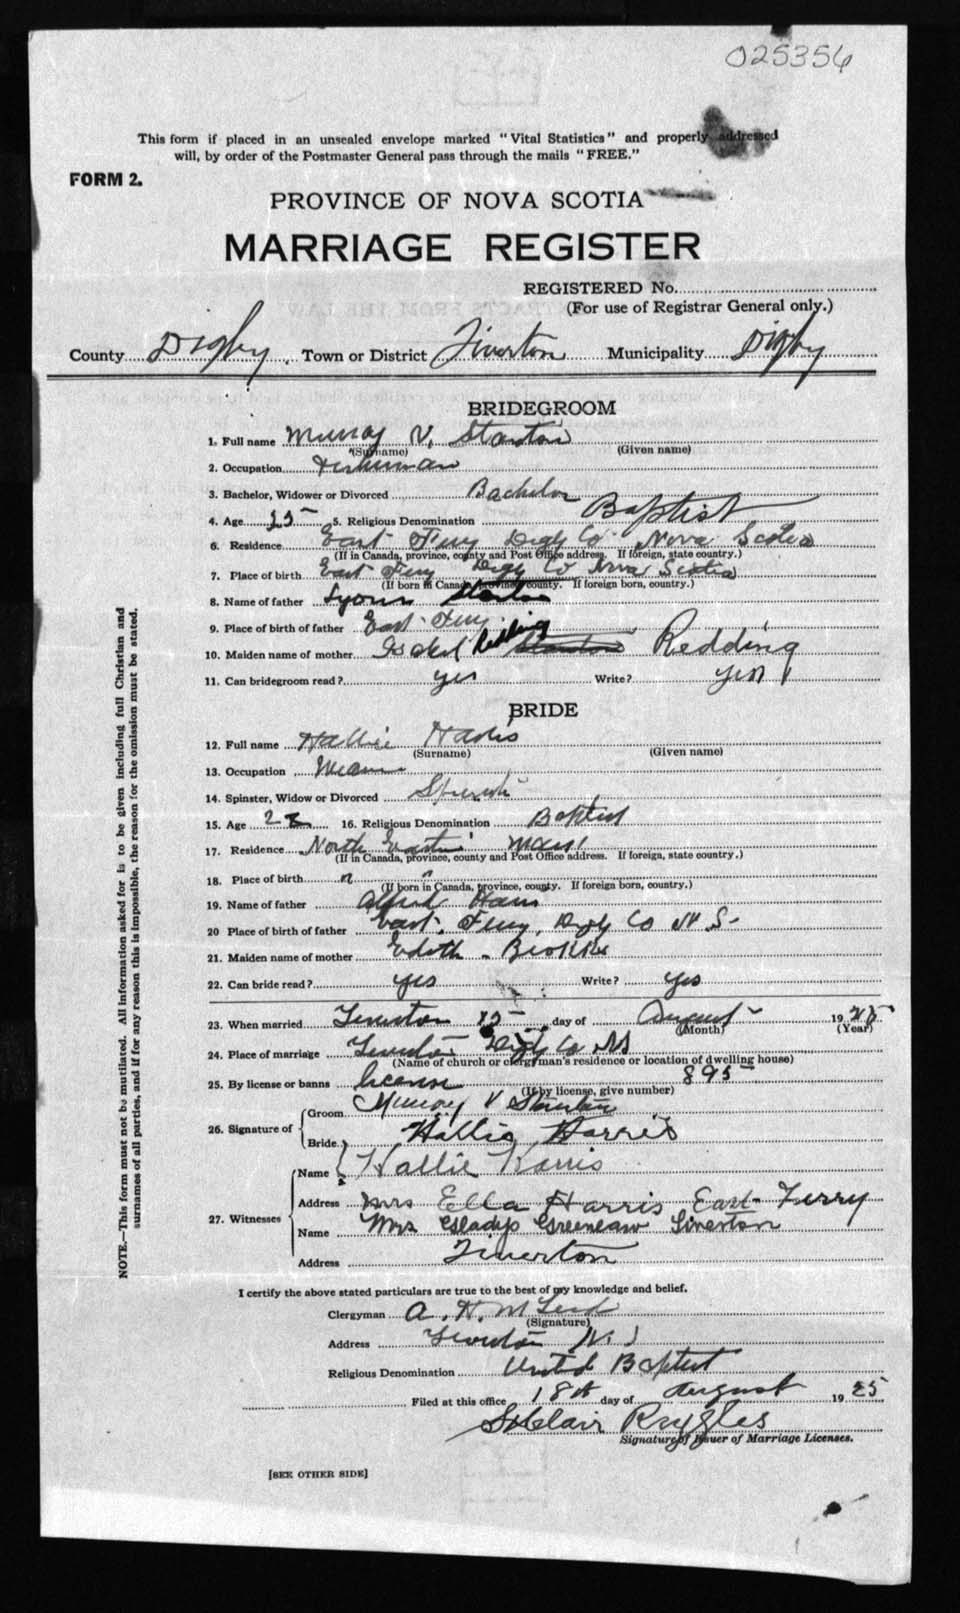 025356
This form if placed in an unsealed envelope marked "Vital Statistics" and properly addressed
will, by order of the Postmaster General pass through the mails "FREE."
FORM 2.
PROVINCE OF NOVA SCOTIA
MARRIAGE REGISTER
REGISTERED No.
(For use of Registrar General only.)
County Digby Town or District Tiverton Municipality Digby
BRIDEGROOM
1. Full name Murray V. Stanton
(Surname) (Given name)
2. Occupation Fisherman
3. Bachelor, Widower or Divorced Bachelor
4. Age 25 5. Religious Denomination Baptist
6. Residence East Ferry Digby Co. Nova Scotia
(If in Canada, province, county and Post Office address. If foreign, state country.)
7. Place of birth East Ferry Digby Co Nova Scotia
(If born in Canada, province, county. If foreign born, country.)
8. Name of father Stanton
9. Place of birth of father East Ferry
10. Maiden name of mother Redding Stanton Redding
11. Can bridegroom read? yes Write? yes
BRIDE
12. Full name Hallie Harris
(Surname) (Given name)
13. Occupation
14. Spinster, Widow or Divorced Spinster
15. Age 28 16. Religious Denomination Baptist
17. Residence North Easton Mass
(If in Canada, province, county and Post Office address. If foreign, state country.)
18. Place of birth " "
(If born in Canada, province, county. If foreign born, country.)
19. Name of father Alfred Harris
20 Place of birth of father East Ferry, Digby Co N S
21. Maiden name of mother Edith
22. Can bride read? yes Write? yes
23. When married Tiverton day of August 1925
(Month) (Year)
24. Place of marriage Tiverton Digby Co NS
(Name of church or clergyman's residence or location of dwelling house)
25. By license or banns license 895
(If by license, give number)
26. Signature of Groom Murray V Stanton
Bride Hallie Harris
27. Witnesses Name Hallie Harris
Address Mrs Ella Harris East Ferry
Name Mrs Gladys Greenlaw Tiverton
Address Tiverton
I certify the above stated particulars are true to the best of my knowledge and belief.
Clergyman A. H. McLeod
(Signature)
Address Tiverton N.S
Religious Denomination United Baptist
Filed at this office 18th day of August 1925
St Clair Ruggles
Signature of Issuer of Marriage Licenses.
[SEE OTHER SIDE]
NOTE.—This form must not be mutilated. All information asked for is to be given including full Christian and
surnames of all parties, and if for any reason this is impossible, the reason for the omission must be stated.